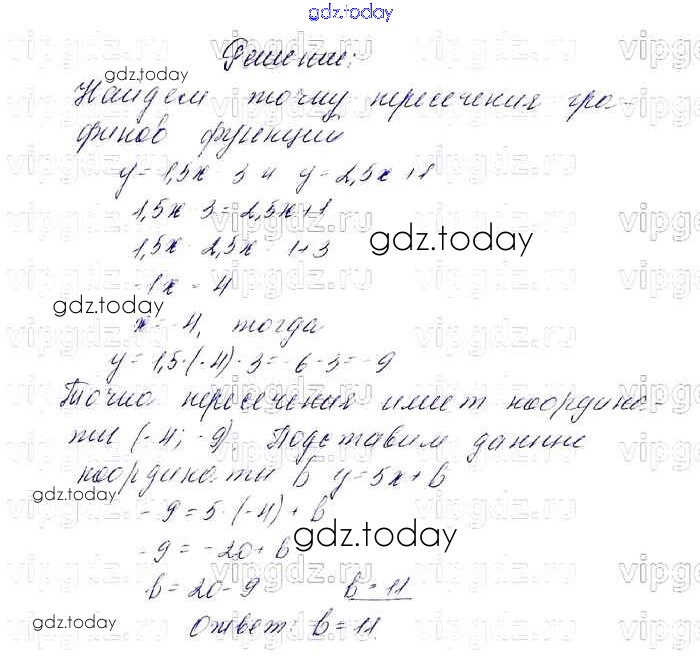 gdz.today
Решение:
gdz.today
Найдем точку пересечения гра-
фиков функций
y = 1,5x - 3 и y = 2,5x + 1
1,5x - 3 = 2,5x + 1
1,5x - 2,5x = 1 + 3
gdz.today
-1x = 4
gdz.today
x = -4, тогда
y = 1,5·(-4) - 3 = -6 - 3 = -9
Точка пересечения имеет координа-
ты (-4; -9) Подставим данные
координаты в y = 5x + b
gdz.today
-9 = 5·(-4) + b
gdz.today
-9 = -20 + b
b = 20 - 9 b = 11
gdz.today
Ответ: b = 11